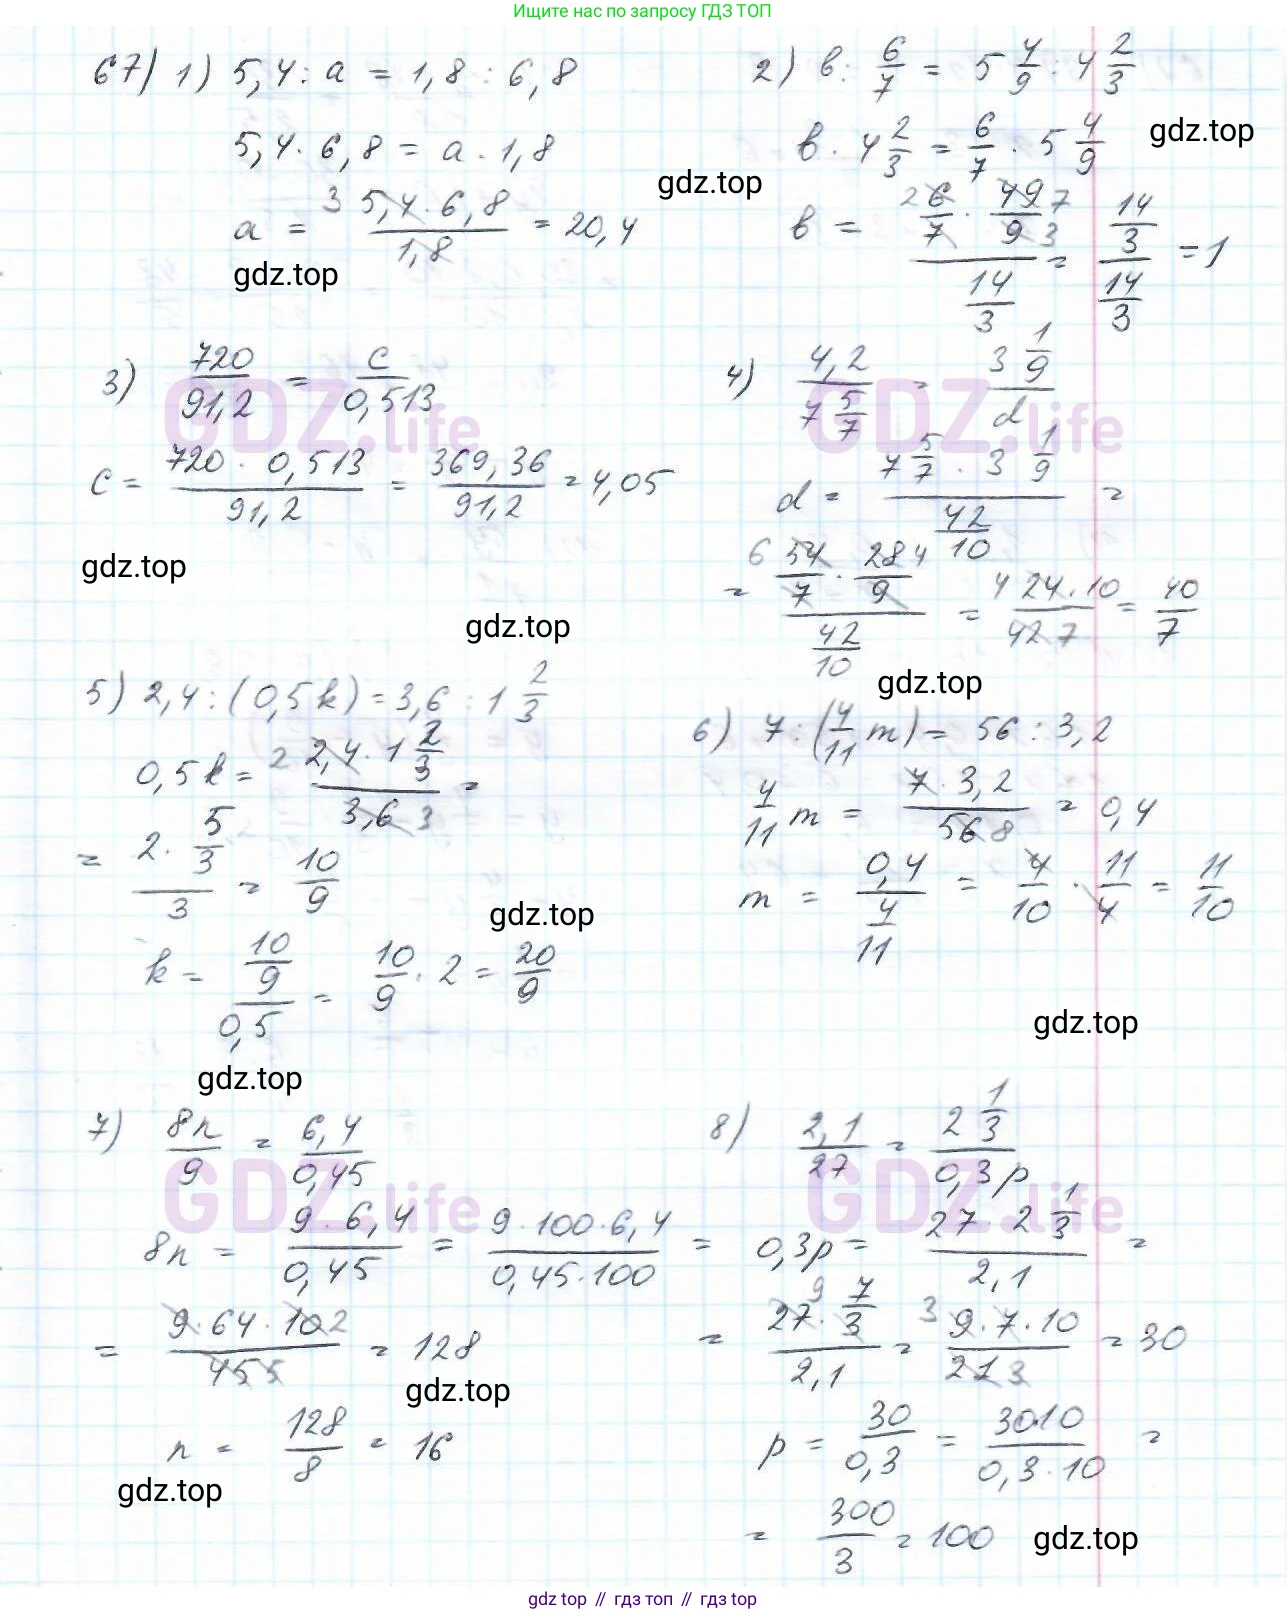 Ищите нас по запросу ГДЗ ТОП
67) 1) 5,4 : a = 1,8 : 6,8
5,4 · 6,8 = a · 1,8
a = 3 5,4 · 6,8 / 1,8 = 20,4
gdz.top
gdz.top
2) b : 6/7 = 5 4/9 : 4 2/3
b · 4 2/3 = 6/7 · 5 4/9
gdz.top
b = (2 6/7 · 49 7/9 3) / (14/3) = (14/3) / (14/3) = 1
3) 720/91,2 = c/0,513
GDZ.life
c = 720 · 0,513 / 91,2 = 369,36 / 91,2 = 4,05
gdz.top
gdz.top
4) 4,2 / 7 5/7 = 3 1/9 / d
GDZ.life
d = (7 5/7 · 3 1/9) / (42/10) =
= (6 54/7 · 28 4/9) / (42/10) = 4 24 · 10 / 42 7 = 40/7
gdz.top
5) 2,4 : (0,5k) = 3,6 : 1 2/3
0,5k = 2 2,4 · 1 2/3 / 3,6 3 =
= (2 · 5/3) / 3 = 10/9
gdz.top
k = (10/9) / 0,5 = 10/9 · 2 = 20/9
gdz.top
6) 7 : (4/11 m) = 56 : 3,2
4/11 m = 7 · 3,2 / 56 8 = 0,4
m = 0,4 / (4/11) = 4/10 · 11/4 = 11/10
gdz.top
7) 8n/9 = 6,4/0,45
GDZ.life
8n = 9 · 6,4 / 0,45 = 9 · 100 · 6,4 / 0,45 · 100 =
= 9 · 64 · 10 2 / 45 5 = 128
gdz.top
n = 128/8 = 16
gdz.top
8) 2,1/27 = 2 1/3 / 0,3p
GDZ.life
0,3p = 27 · 2 1/3 / 2,1 =
= (27 9 · 7/3) / 2,1 = 3 9 · 7 · 10 / 21 3 = 30
p = 30/0,3 = 30·10 / 0,3 · 10 =
= 300/3 = 100
gdz.top
gdz top // гдз топ // gdz top